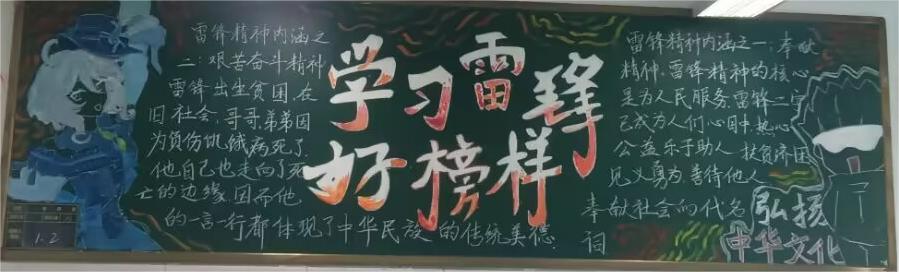 雷锋精神内涵之
二：艰苦奋斗精神
雷锋出生贫困，在
旧社会，哥哥，弟弟因
为负伤饥饿病死了，
他自己也走向了死
亡的边缘，因而他
的一言一行都体现了中华民族的传统美德
学习雷锋
好榜样
雷锋精神内涵之一：奉献
精神，雷锋精神的核心
是为人民服务，雷锋二字
已成为人们心目中，热心
公益，乐于助人，扶贫济困，
见义勇为，善待他人，
奉献社会的代名
词
弘扬
中华文化
1.2